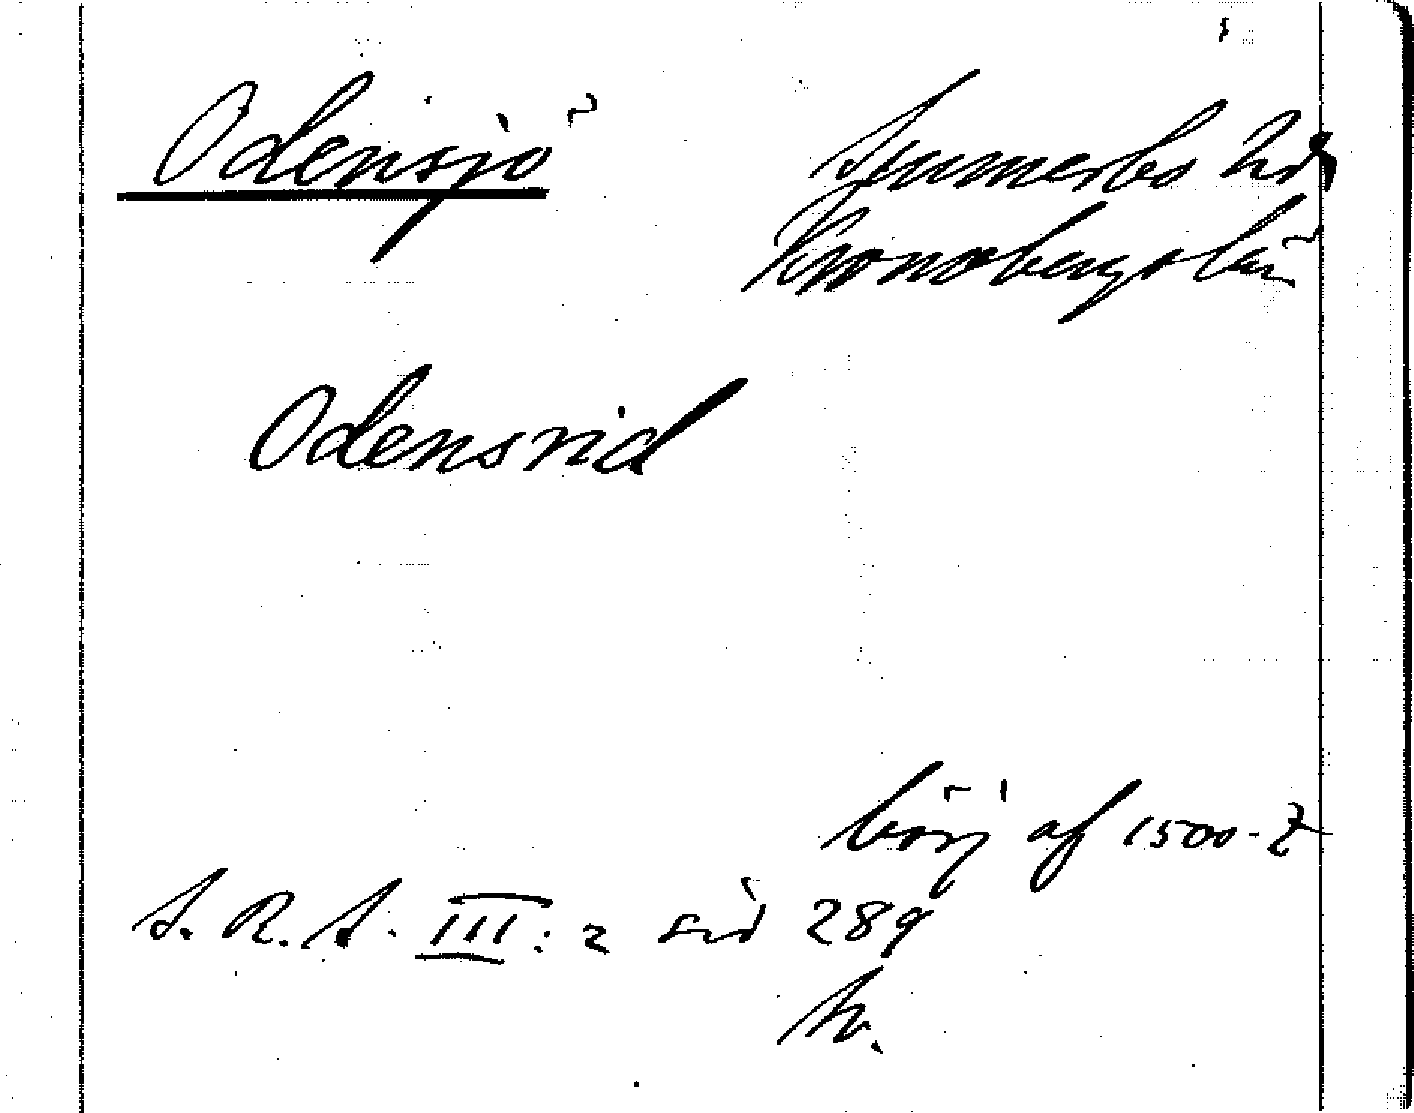 Odensjö
Sunnerbo hd
Kronobergs län
Odensvid
börj af 1500-t
S. R. A. III: 2 sid 289